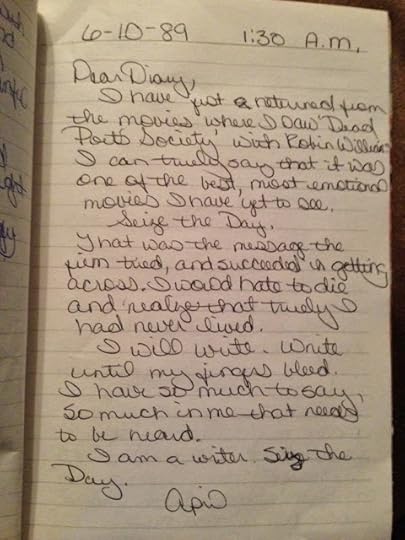 6-10-89 1:30 A.M.
Dear Diary,
I have just returned from
the movies, where I saw "Dead
Poets Society" with Robin Williams
I can truely say that it was
one of the best, most emotional
movies I have yet to see.
Seize the Day.
That was the message the
film tried, and succeeded in getting
across. I would hate to die
and realize that truely I
had never lived.
I will write. Write
until my fingers bleed.
I have so much to say,
so much in me that needs
to be heard.
I am a writer. Seize the
Day.